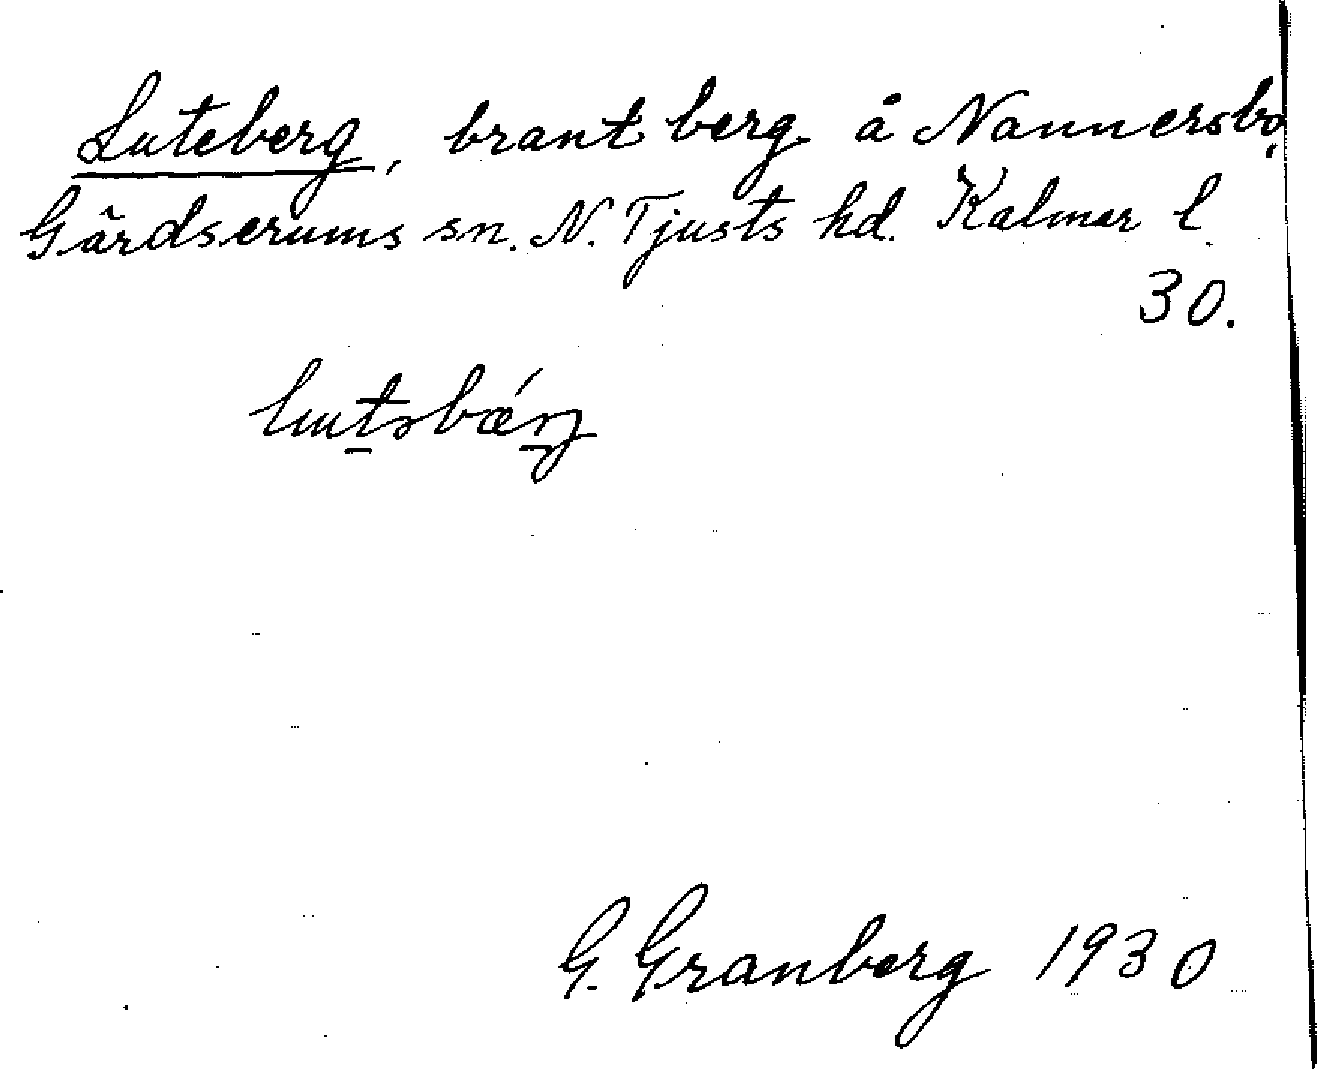 Luteberg, brant berg å Nannersbo,
Gärdserums sn. N. Tjusts hd. Kalmar l.
30.
G. Granberg 1930